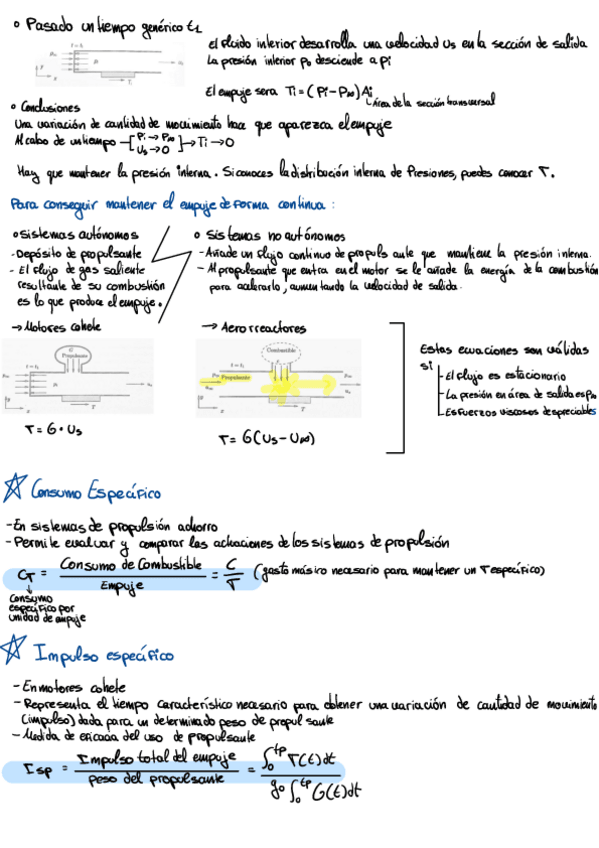 o Pasado un tiempo genérico t1
el fluido interior desarrolla una velocidad Us en la sección de salida
La presión interior p0 desciende a pi
El empuje sera Ti = (Pi - P∞) Ai
Área de la sección transversal
o Conclusiones
Una variación de cantidad de movimiento hace que aparezca el empuje
Al cabo de un tiempo - [ Pi → P∞ Us → 0 ] → Ti → 0
Hay que mantener la presión interna. Si conoces la distribución interna de Presiones, puedes conocer T.
Para conseguir mantener el empuje de forma continua :
o Sistemas autónomos
- Depósito de propulsante
- El flujo de gas saliente
resultante de su combustión
es lo que produce el empuje.
→ Motores cohete
t = t1
Propulsante
pi
T
T = G · Us
o Sistemas no autónomos
- Añade un flujo continuo de propulsante que mantiene la presión interna.
- Al propulsante que entra en el motor se le añade la energía de la combustión
para acelerarlo, aumentando la velocidad de salida.
→ Aerorreactores
Combustible
t = t1
Propulsante
T
T = G (Us - U∞)
Estas ecuaciones son válidas
si
- El flujo es estacionario
- La presión en área de salida es p∞
- Esfuerzos viscosos despreciables
Consumo Específico
- En sistemas de propulsión achorro
- Permite evaluar y comparar las actuaciones de los sistemas de propulsión
CT = Consumo de Combustible / Empuje = C / T (gasto másico necesario para mantener un T específico)
Consumo
específico por
unidad de empuje
Impulso específico
- En motores cohete
- Representa el tiempo característico necesario para obtener una variación de cantidad de movimiento
(impulso) dada para un determinado peso de propulsante
- Medida de eficacia del uso de propulsante
Isp = Impulso total del empuje / peso del propulsante = ∫0^tp T(t)dt / g0 ∫0^tp G(t)dt